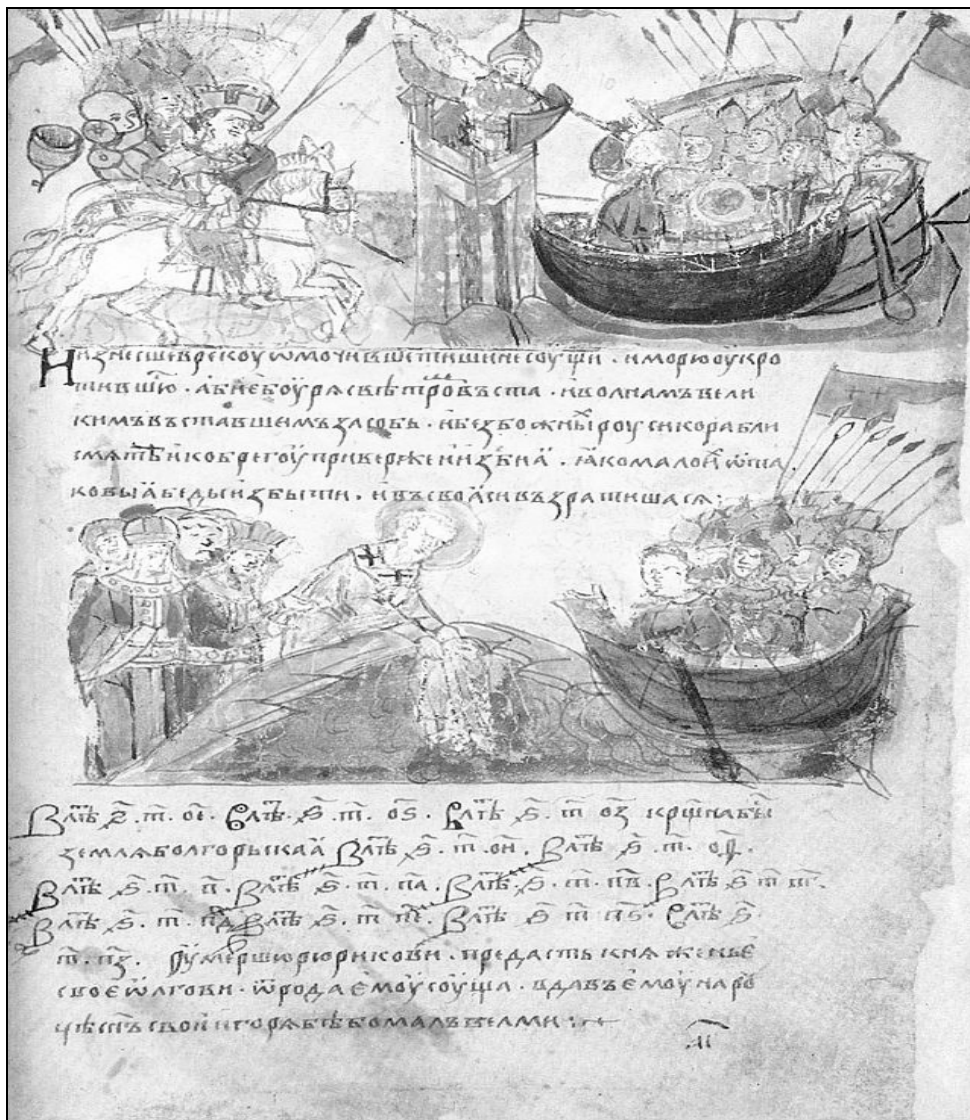 ризнесшеврекоуѡмочившетишинесоущи · иморюоукро
тившю · абиебоурясвѣтромъвъста · иволнамъвели
кимъвъставшемъзасобь · ибезбожныхроусикорабли
смѧтеикобрегоуприверже · ꙗкомалоихѿта
ковыꙗбедыизбыти · ивъсвоꙗсивъзратишасѧ ·
Влⷮѣ ҂ѕ · т · ое · Влⷮѣ · ҂ѕ · т · оѕ · Влⷮѣ · ҂ѕ · т · оз
землѧболгорьскаꙗ Влⷮѣ ҂ѕ · т · ои · Влⷮѣ ҂ѕ · т ·
Влⷮѣ ҂ѕ · т · п · Влⷮѣ ҂ѕ · т · па · Влⷮѣ · ҂ѕ · т · пв · Влⷮѣ ҂ѕ т пг ·
Влⷮѣ ҂ѕ · т · пд Влⷮѣ ҂ѕ · т пе · Влⷮѣ ҂ѕ т пѕ · Влⷮѣ ҂ѕ ·
т · пз · оумершюрюрикови · предастькнѧженьє
своєѡлгови · ѿродаємоусоуща · вдавъємоунароу
сынъсвоиигорѧбѣбомалъвелми